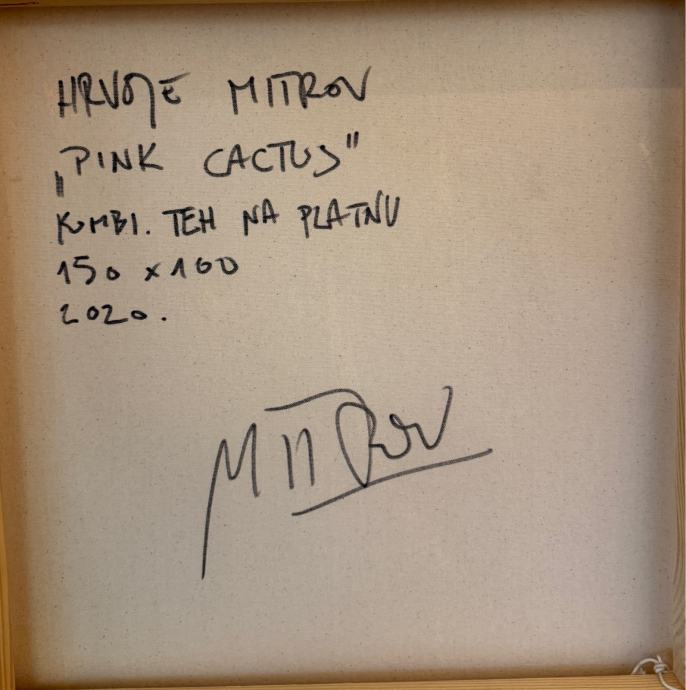 HRVOJE MITROV
„PINK CACTUS"
KOMBI. TEH NA PLATNU
150 x 160
2020.
MITROV